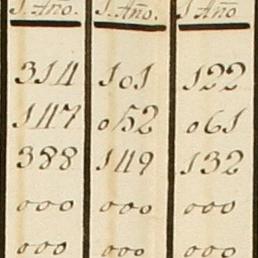 1. Año. 1. Año. 1 Año
314 101 122
147 052 061
388 149 132
000 000 000
000 000 000